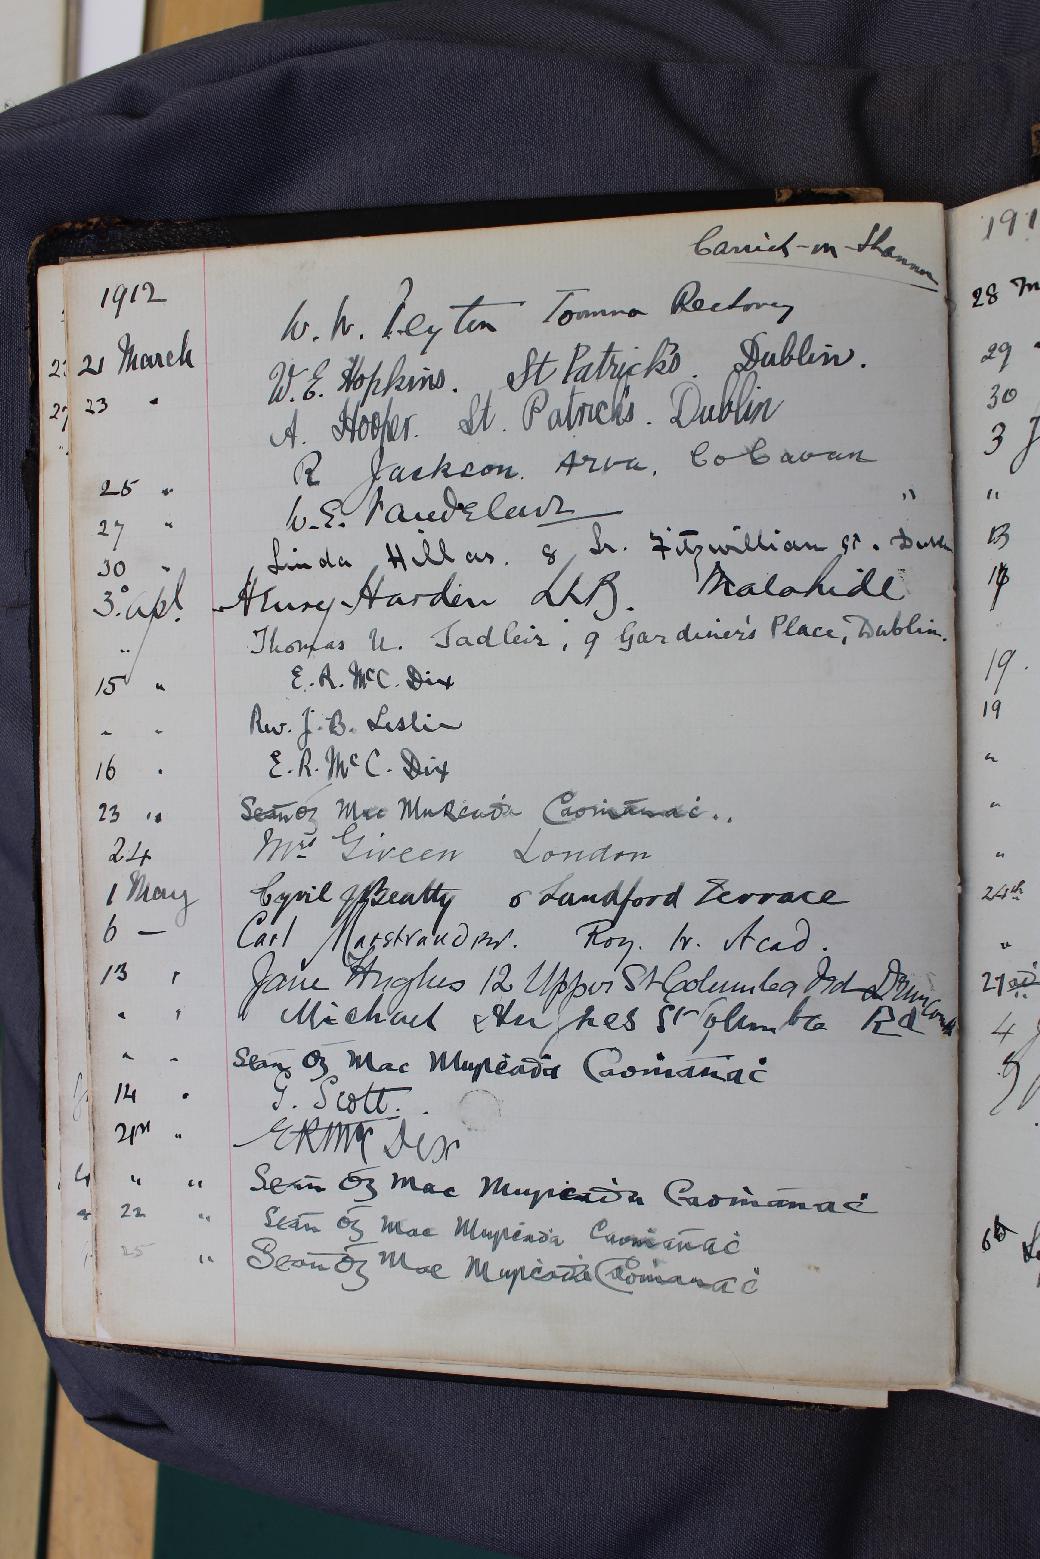 Carrick-on-Shannon
1912
W. W. Peyton Toomna Rectory
21 March W. E. Hopkins. St Patrick's. Dublin.
23 " A. Hooper. St. Patrick's. Dublin
R Jackson. Arva. Co Cavan
25 " W. E. Vandeleur "
27 "
30 " Linda Hillas. 8 Lr. Fitzwilliam St. Dublin
3. Apl. Henry Harden LLB. Malahide
" Thomas U. Sadleir; 9 Gardiner's Place, Dublin.
15 " E. R. McC. Dix
" " Rev. J. B. Leslie
16 " E. R. McC. Dix
23 " Seán Óg Mac Murċaḋa Caoṁánaċ..
24 Mrs Green London
1 May Cyril J Beatty 5 Sandford Terrace
6 — Carl Marstrander. Roy. Ir. Acad.
13 " Jane Hughes 12 Upper St Columba Rd Drumcondra
" " Michael Hughes St Columba Rd
" " Seán Óg Mac Murċaḋa Caoṁánaċ
14 " G. Scott.
21st " E R McC Dix
" " Seán Óg Mac Murċaḋa Caoṁánaċ
22 " Seán Óg Mac Murċaḋa Caoṁánaċ
25 " Seán Óg Mac Murċaḋa Caoṁánaċ
191
28
29
30
3 J
"
13
19.
19
"
"
"
24th
"
4
6th